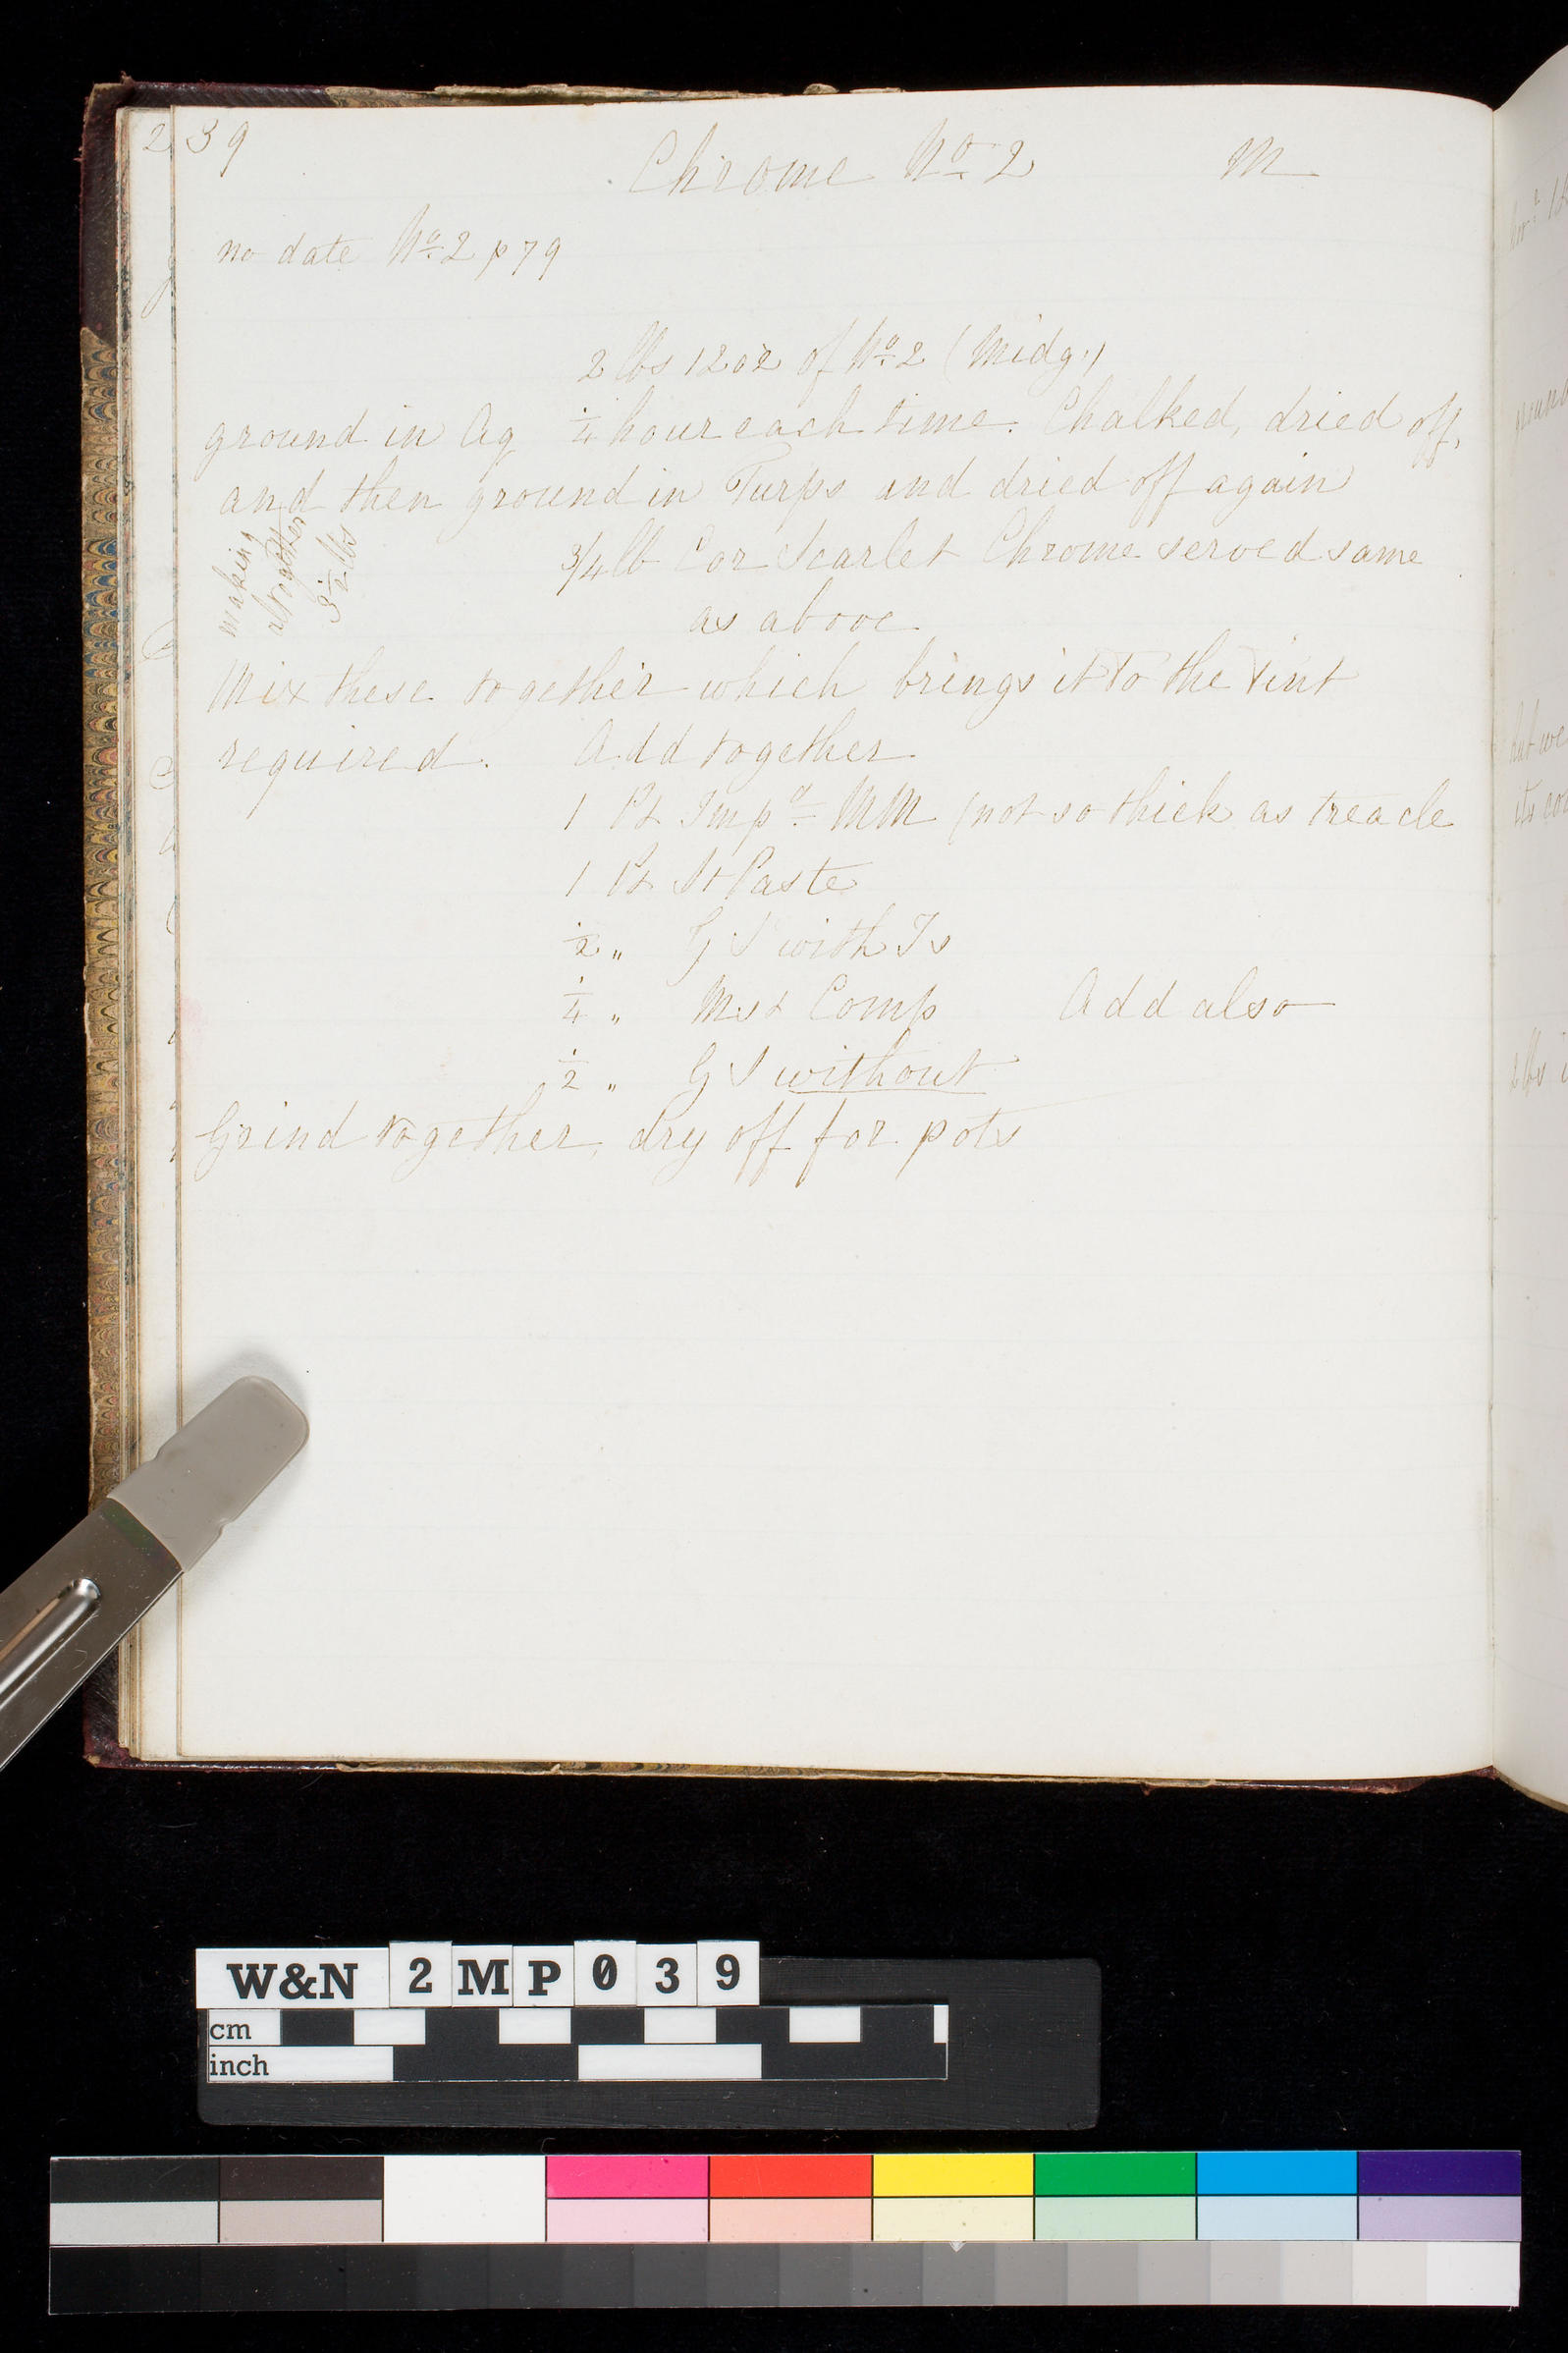 39
Chrome No. 2 M
no date No. 2 p 79
2 lbs 12 oz of No. 2 (Midg.)
ground in Aq 1/4 hour each time. Chalked, dried off,
and then ground in Turps and dried off again
making
altogether
3 1/2 lbs
3/4 lb Cor Scarlet Chrome served same
as above
Mix these together which brings it to the tint
required. Add together
1 Pt Impd. MM (not so thick as treacle
1 Pt St Paste
1/2 " G S with Ts
1/4 " Mst Comp Add also
1/2 " G S without
Grind together, dry off for pots
W&N 2MP039
cm
inch